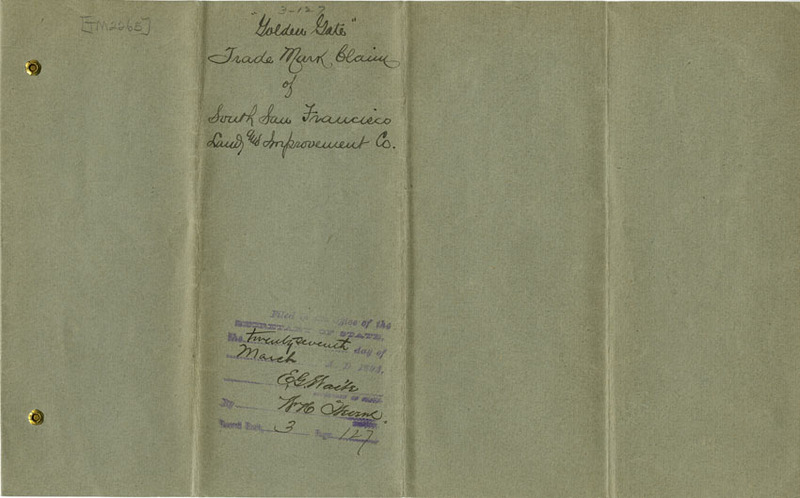 [TM2265]
3-127
"Golden Gate"
Trade Mark Claim
of
South San Francisco
Land and Improvement Co.
Filed in the office of the
SECRETARY OF STATE,
the twenty seventh day of
March A. D. 189
E. G. Waite
SECRETARY OF STATE
By W. H.
Record Book 3 Page 127